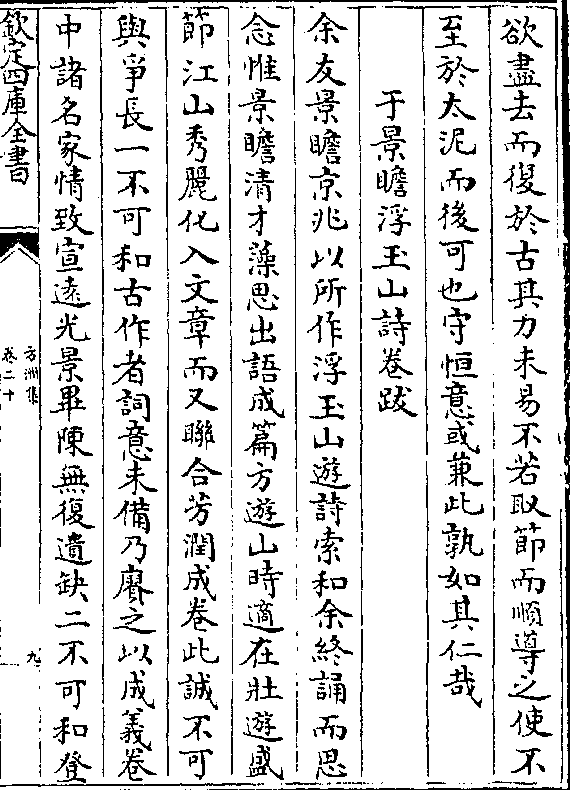 欲盡去而復於古其力未易不若取節而順導之使不
至於太泥而後可也守恒意或兼此孰如其仁哉
于景瞻浮玉山詩卷跋
余友景瞻京兆以所作浮玉山遊詩索和余終誦而思
念惟景瞻清才藻思出語成篇方遊山時適在壯遊盛
節江山秀麗化入文章而又聯合芳潤成卷此誠不可
與爭長一不可和古作者詞意未備乃賡之以成義卷
中諸名家情致宣遠光景畢陳無復遺缺二不可和登
欽定四庫全書
方洲集
卷二十
九